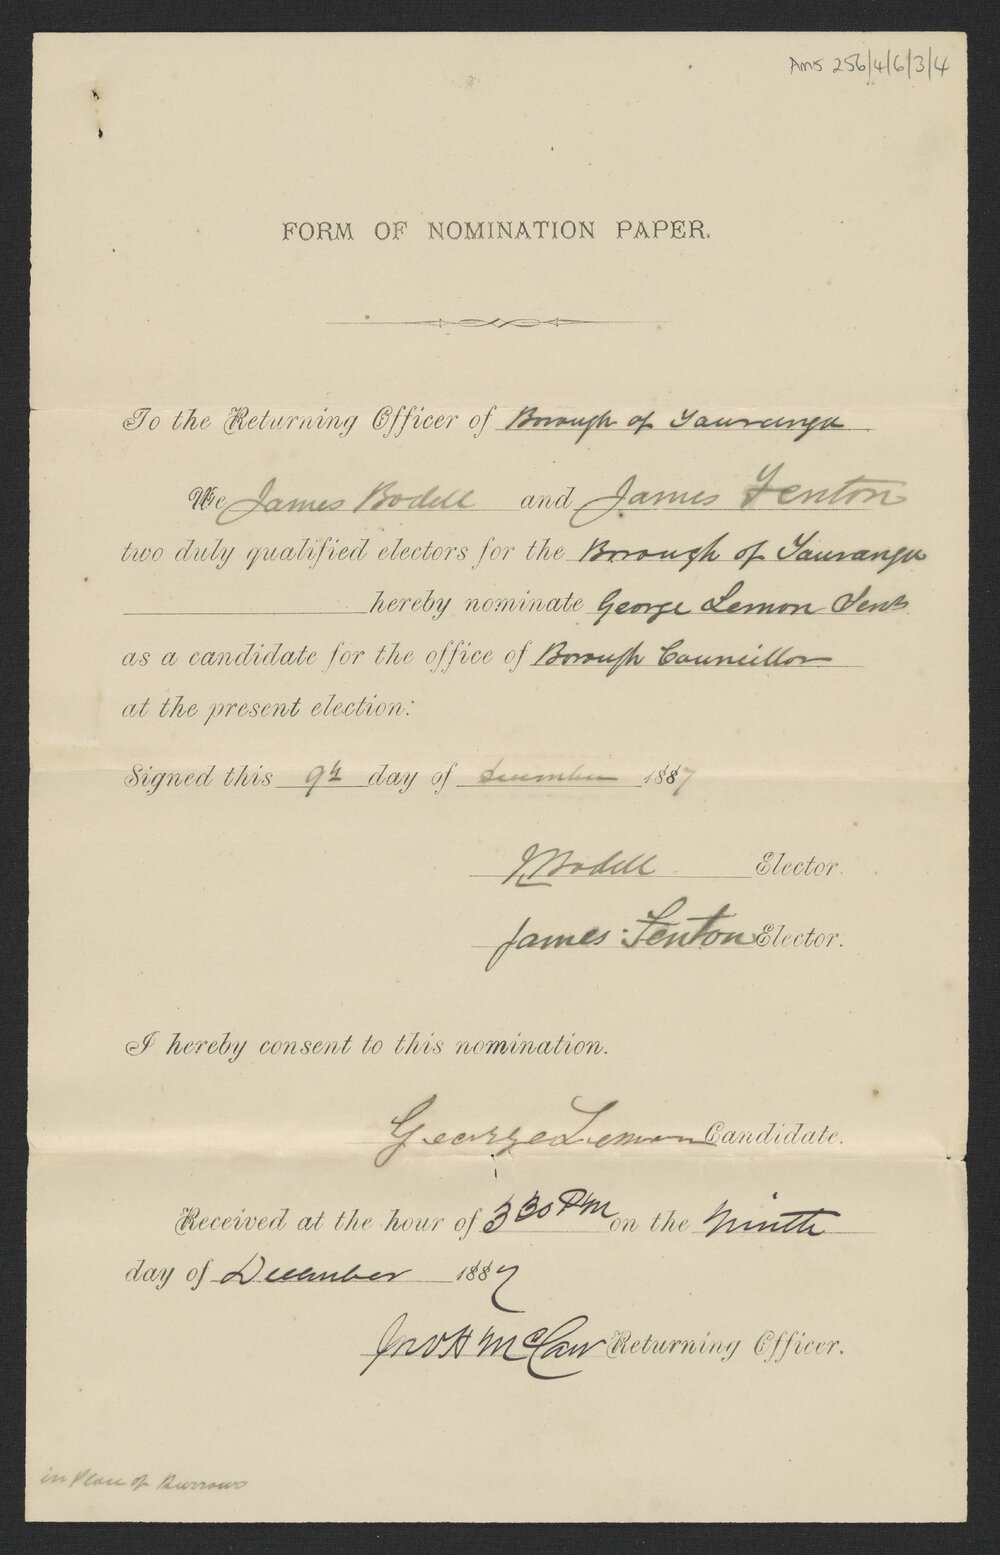 Ams 256/4/6/3/4
FORM OF NOMINATION PAPER.
To the Returning Officer of Borough of Tauranga
We James Bodell and James Fenton
two duly qualified electors for the Borough of Tauranga
hereby nominate George Lemon Senr
as a candidate for the office of Borough Councillor
at the present election:
Signed this 9th day of December 1887
J Bodell Elector.
James Fenton Elector.
I hereby consent to this nomination.
George Lemon Candidate.
Received at the hour of 3 30 PM on the Ninth
day of December 1887
Jno H McCaw Returning Officer.
in Place of Burrows